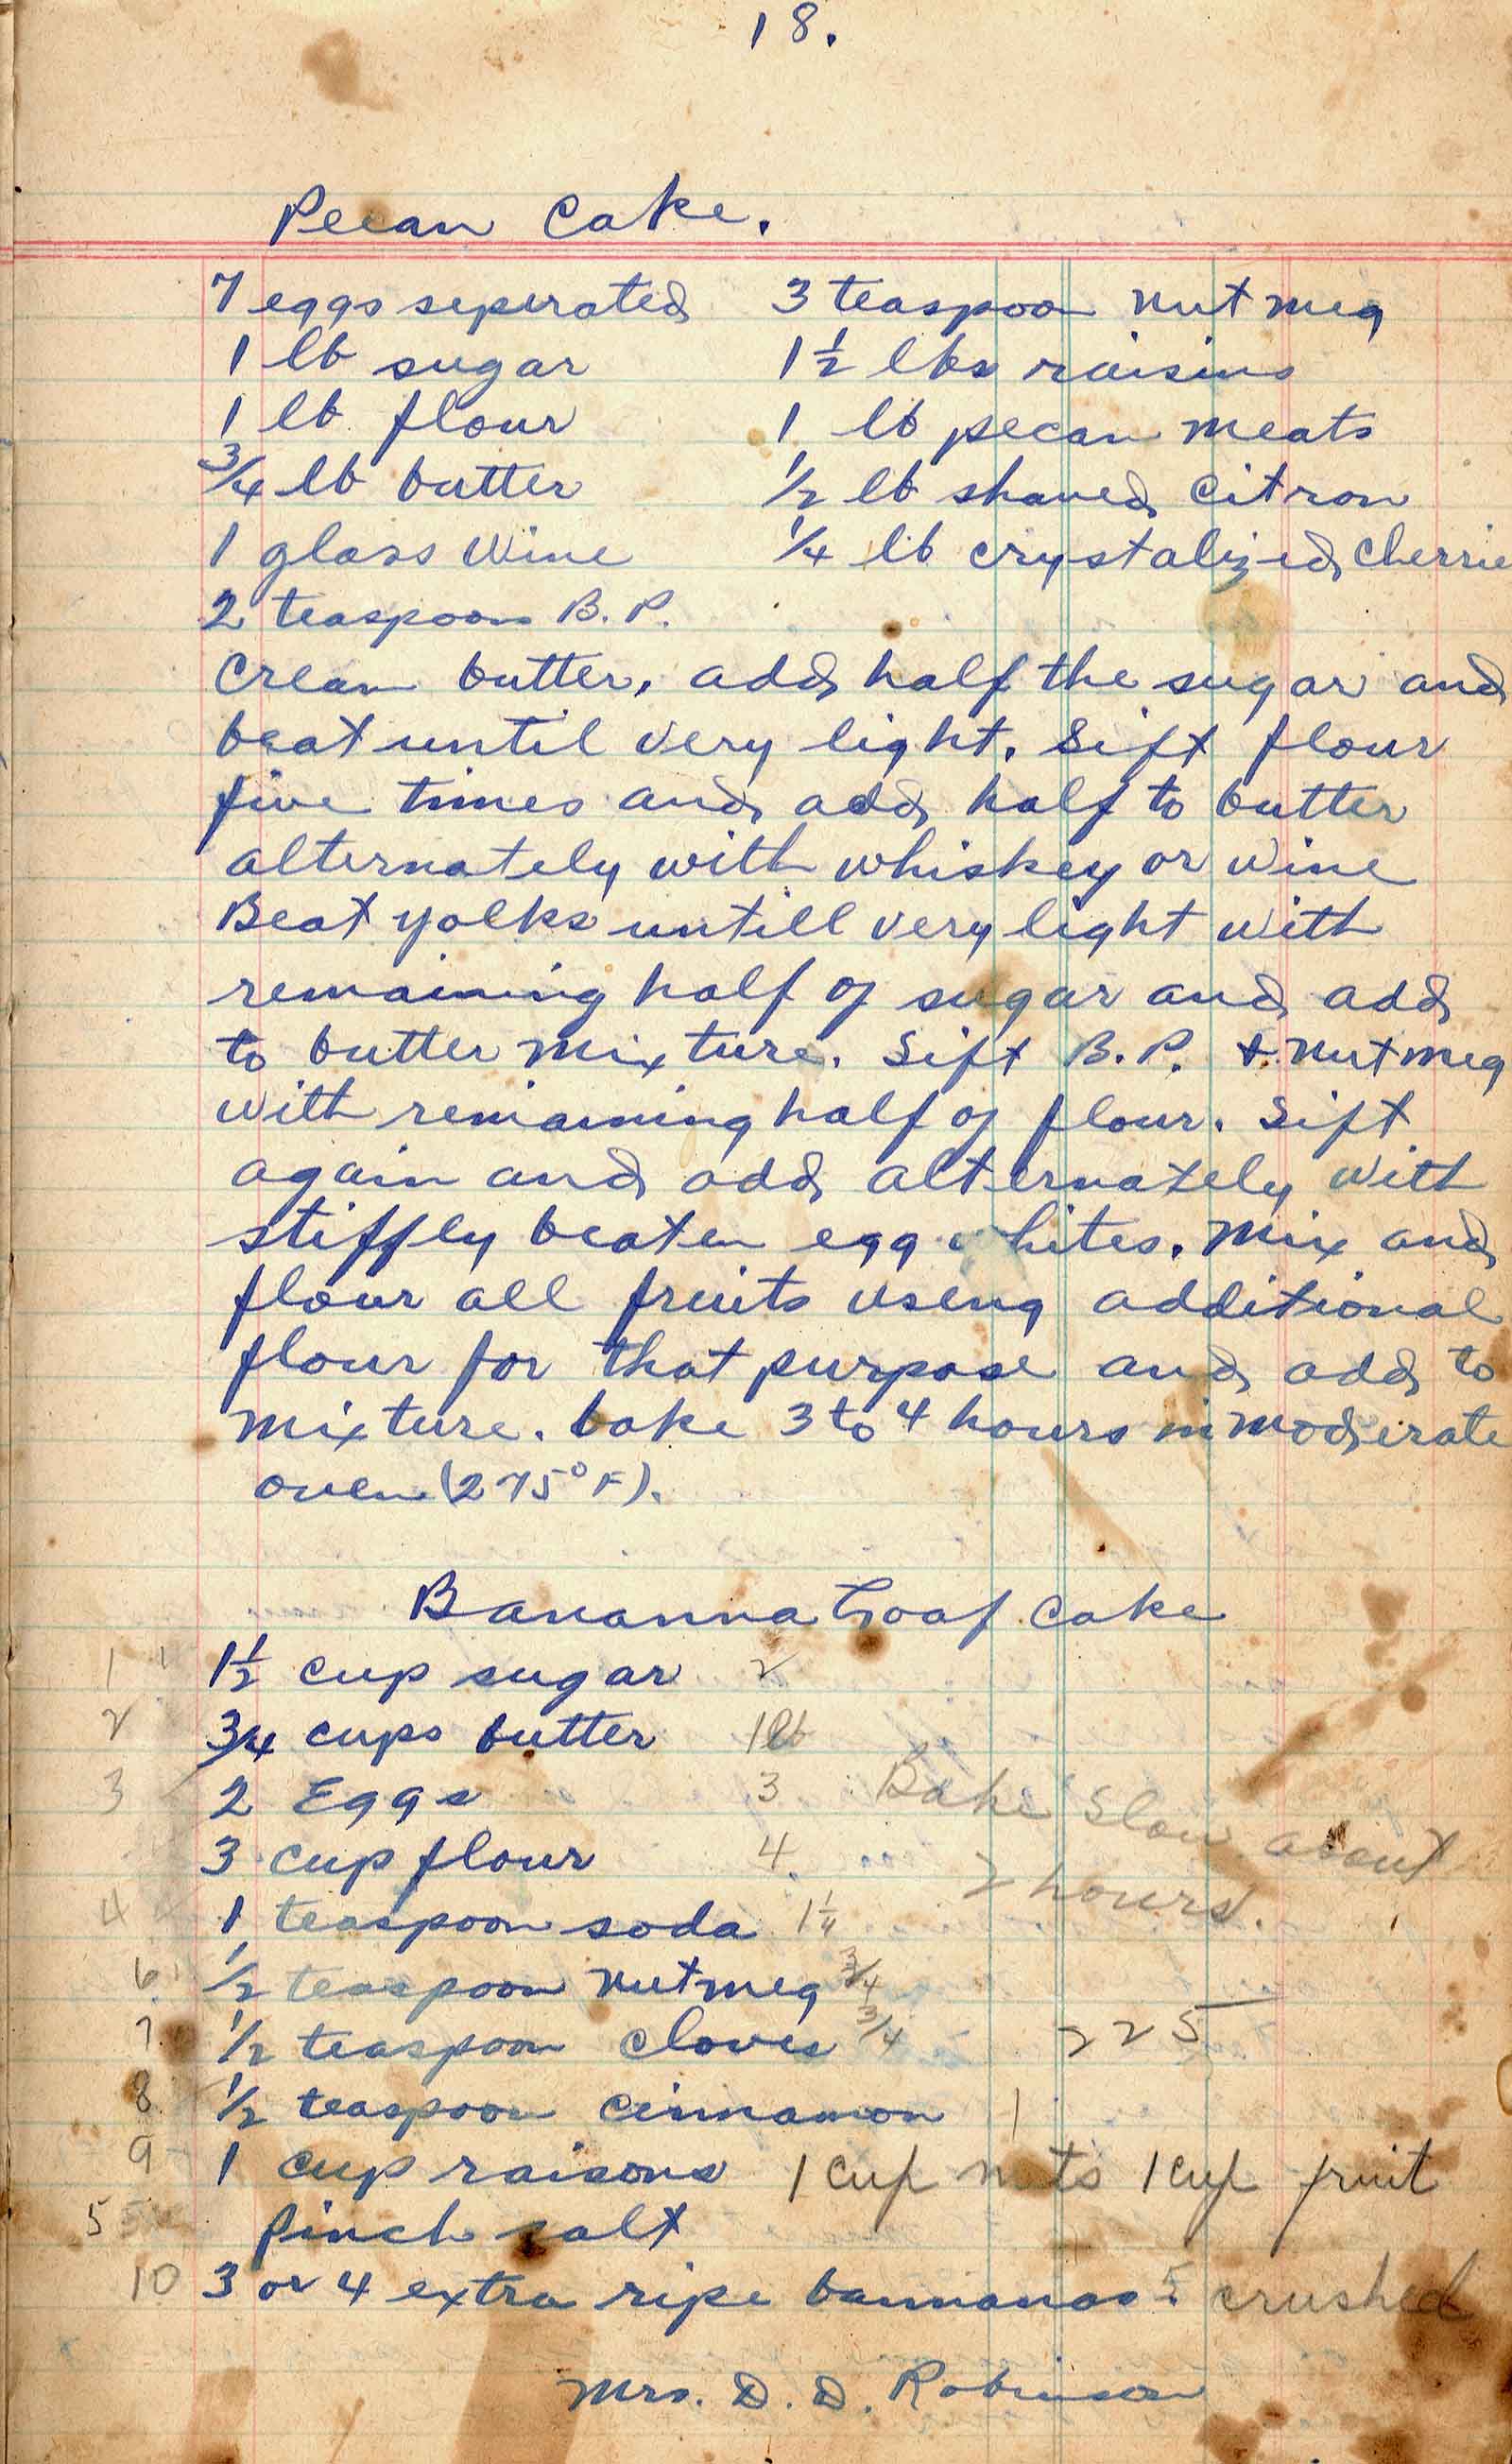 18.
Pecan Cake.
7 eggs seperated 3 teaspoon nutmeg
1 lb sugar 1 1/2 lbs raisins
1 lb flour 1 lb pecan meats
3/4 lb butter 1/2 lb shaved citron
1 glass wine 1/4 lb crystalized cherrie
2 teaspoon B.P.
Cream butter, add half the sugar and
beat until very light. Sift flour
five times and add half to butter
alternately with whiskey or wine
Beat yolks untill very light with
remaining half of sugar and add
to butter mixture. Sift B.P. & nutmeg
with remaining half of flour. Sift
again and add alternately with
stiffly beaten egg whites. Mix and
flour all fruits useng additional
flour for that purpose and add to
mixture. bake 3 to 4 hours in moderate
oven (275° F).
Bananna Loaf Cake
1 1 1/2 cup sugar 2
2 3/4 cups butter 1 lb
3 2 Eggs 3 Bake slow about
3 cup flour 4 2 hours.
4 1 teaspoon soda 1 1/4
6 1/2 teaspoon nutmeg 3/4
7 1/2 teaspoon cloves 3/4 225
8 1/2 teaspoon cinnamon 1
9 1 cup raisons 1 cup nuts 1 cup fruit
5 Pinch salt
10 3 or 4 extra ripe bannanas 5 crushed
Mrs. D. D. Robinson